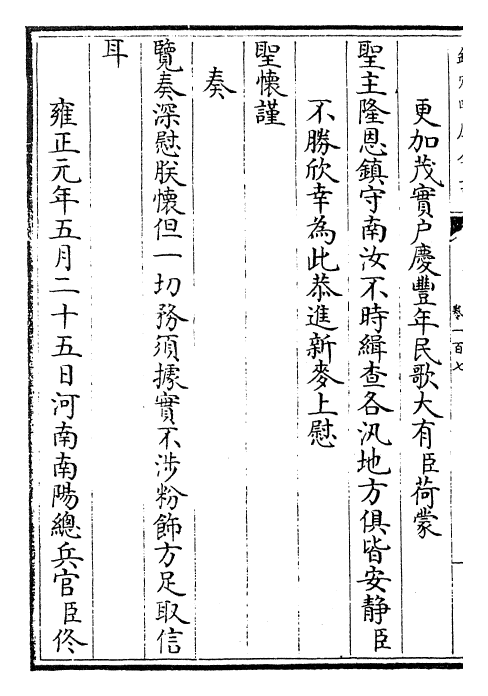 更加茂實户慶豐年民歌大有臣荷蒙
聖主隆恩鎮守南汝不時緝查各汛地方俱皆安靜臣
不勝欣幸為此恭進新麥上慰
聖懷謹
奏
覽奏深慰朕懷但一切務須據實不涉粉飾方足取信
耳
雍正元年五月二十五日河南南陽總兵官臣佟
卷一百七